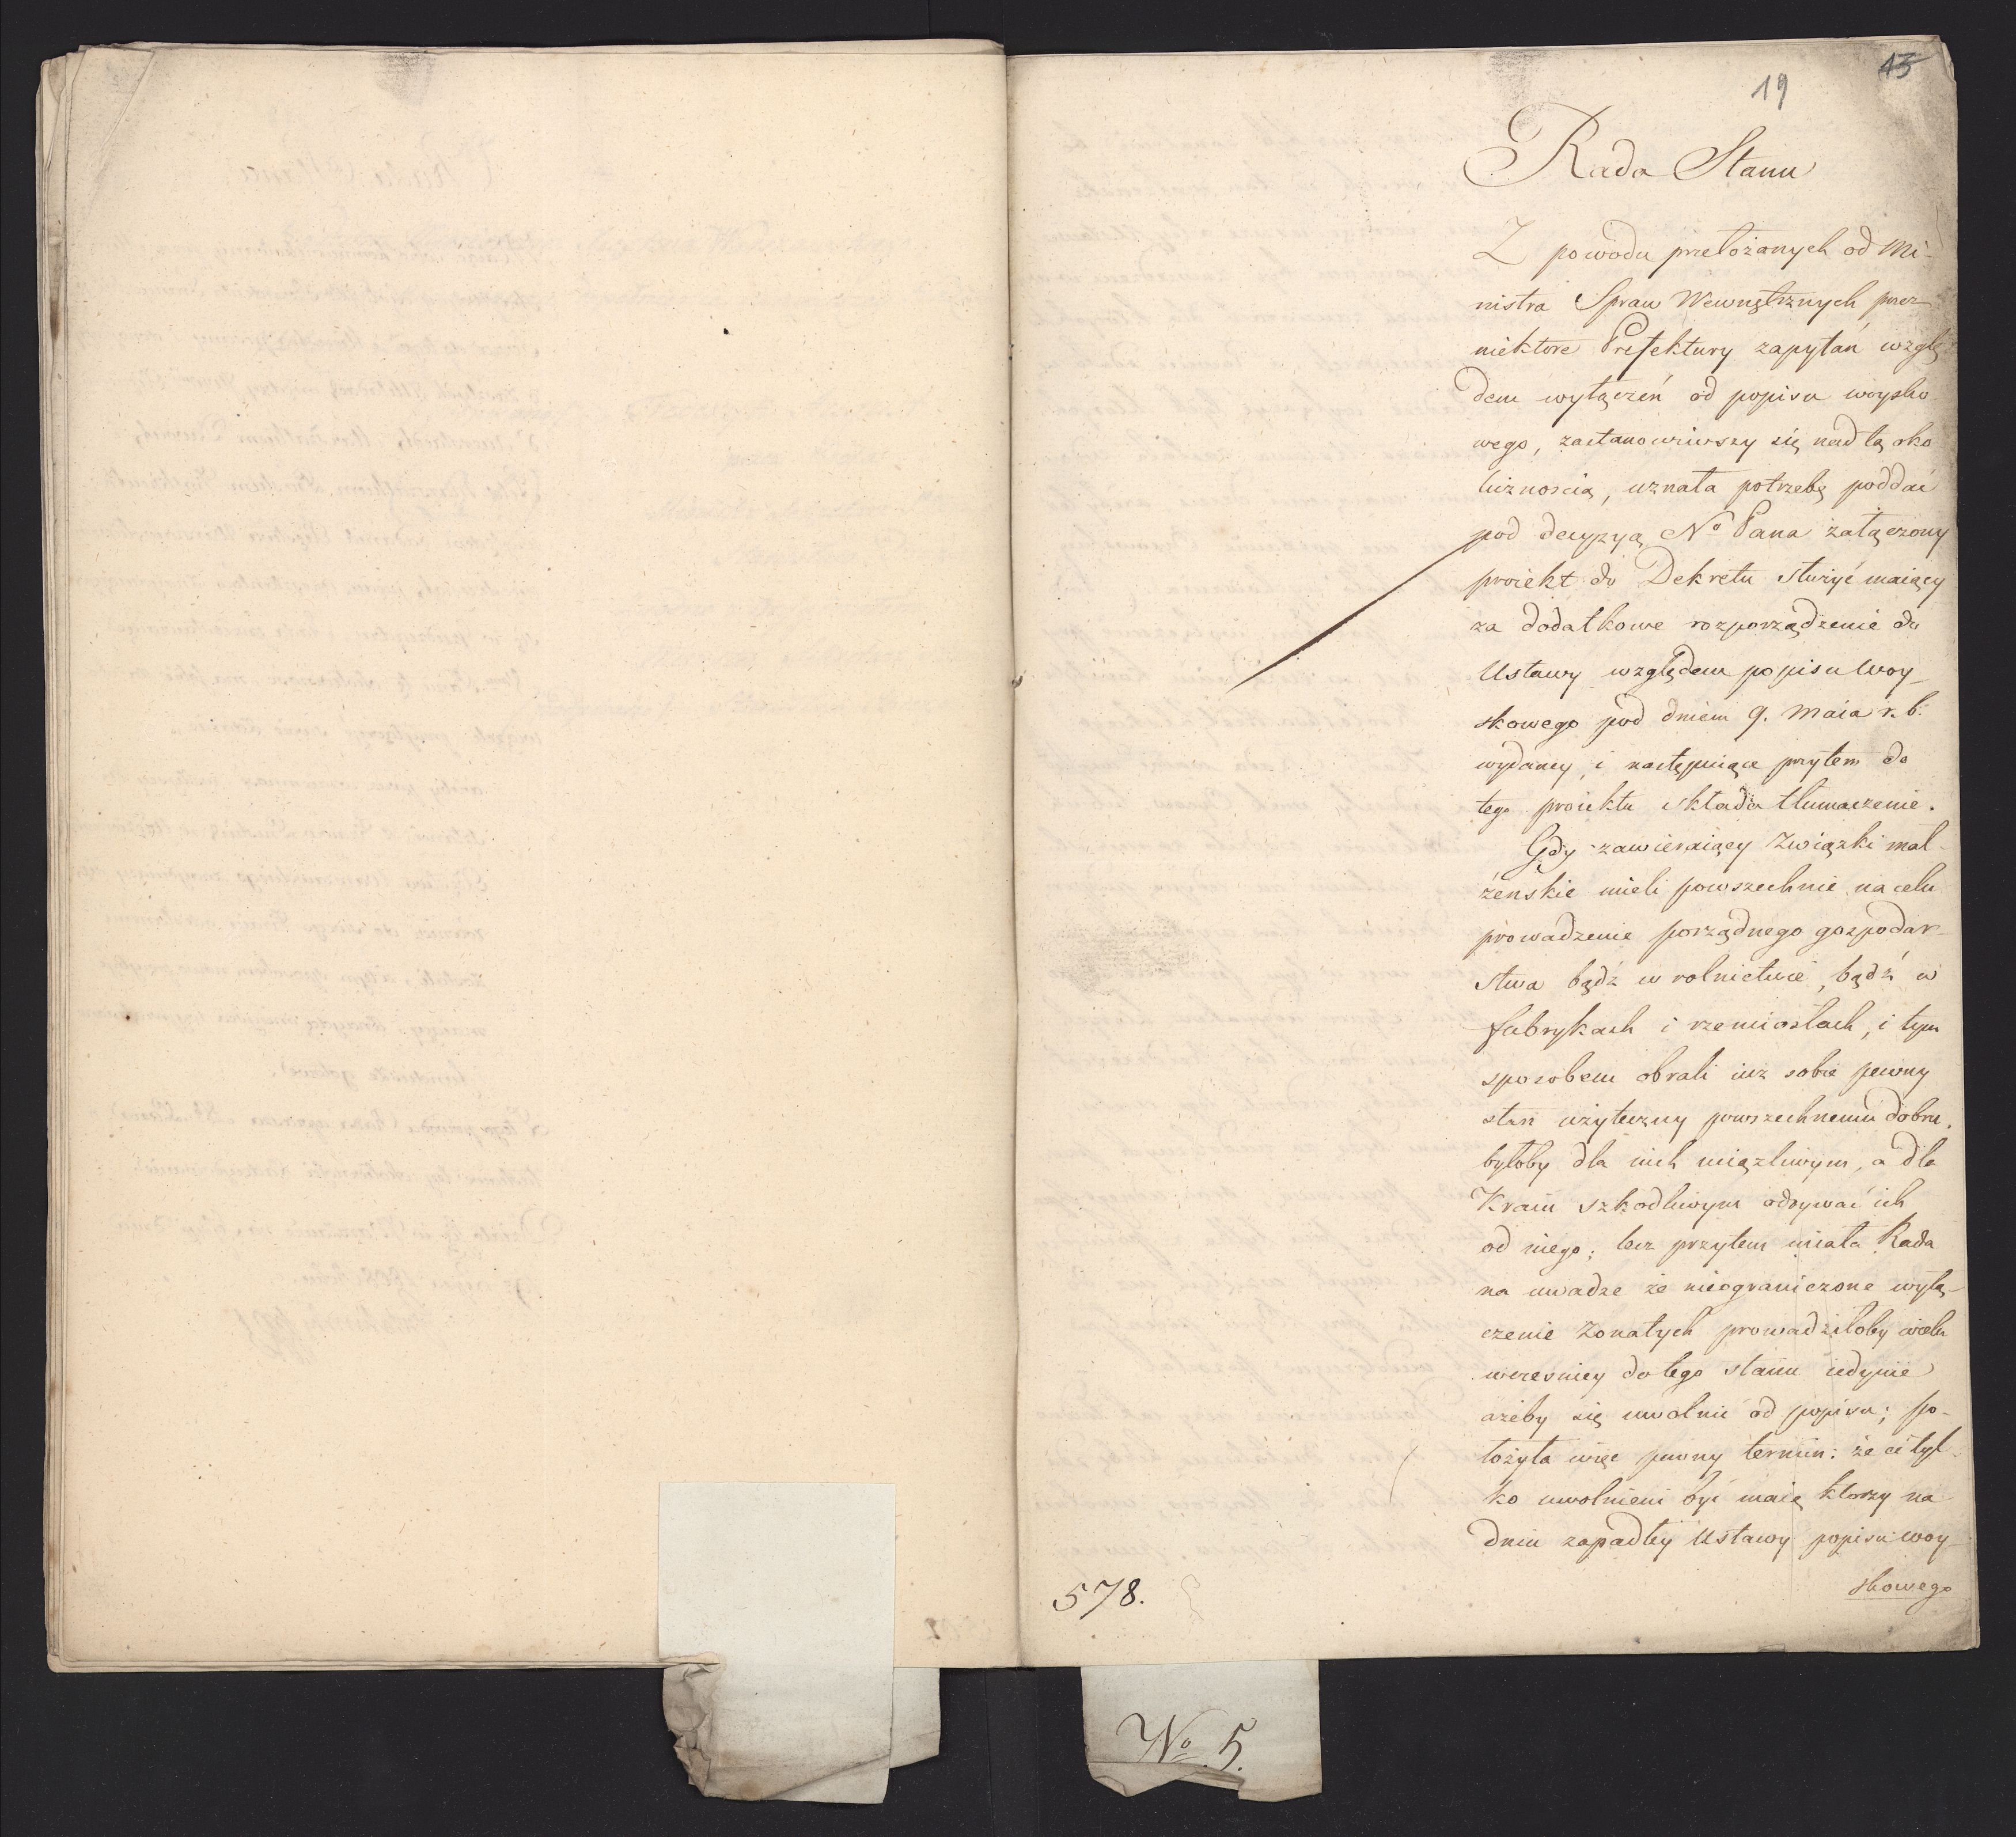 19
13
Rada Stanu
Z powodu przełożonych od Mi-
nistra Spraw Wewnętrznych przez
niektore Prefektury zapytań wzglę-
dem wyłączeń od popisu woysko-
wego, zastanowiwszy się nad tą oko
licznoscią, uznała potrzebę poddać
pod decyzyą No Pana załączony
proiekt do Dekretu służyć maiący
za dodatkowe rozporządzenie do
Ustawy względem popisu Woy-
skowego pod dniem 9. Maia r. b.
wydaney, i następuiące przytem do
tego proiektu składa tłumaczenie.
Gdy zawieraiący Związki mał-
żenskie mieli powszechnie na celu
prowadzenie porządnego gospodar-
stwa bądź w rolnictwie, bądź w
fabrykach i rzemiosłach, i tym
sposobem obrali iuż sobie pewny
stan użyteczny powszechnemu dobru,
byłoby dla nich uciążliwym, a dla
Kraiu szkodliwym odrywać ich
od niego; lecz przytem miała Rada
na uwadze że nieograniczone wyłą-
czenie Zonatych prowadziłoby wielu
wczesniey do tego stanu iedynie
ażeby się uwolnić od popisu; po-
łożyła więc pewny termin: że ci tyl-
ko uwolnieni być maią ktorzy na
dniu zapadłey Ustawy popisu woy-
skowego
578.
No 5.